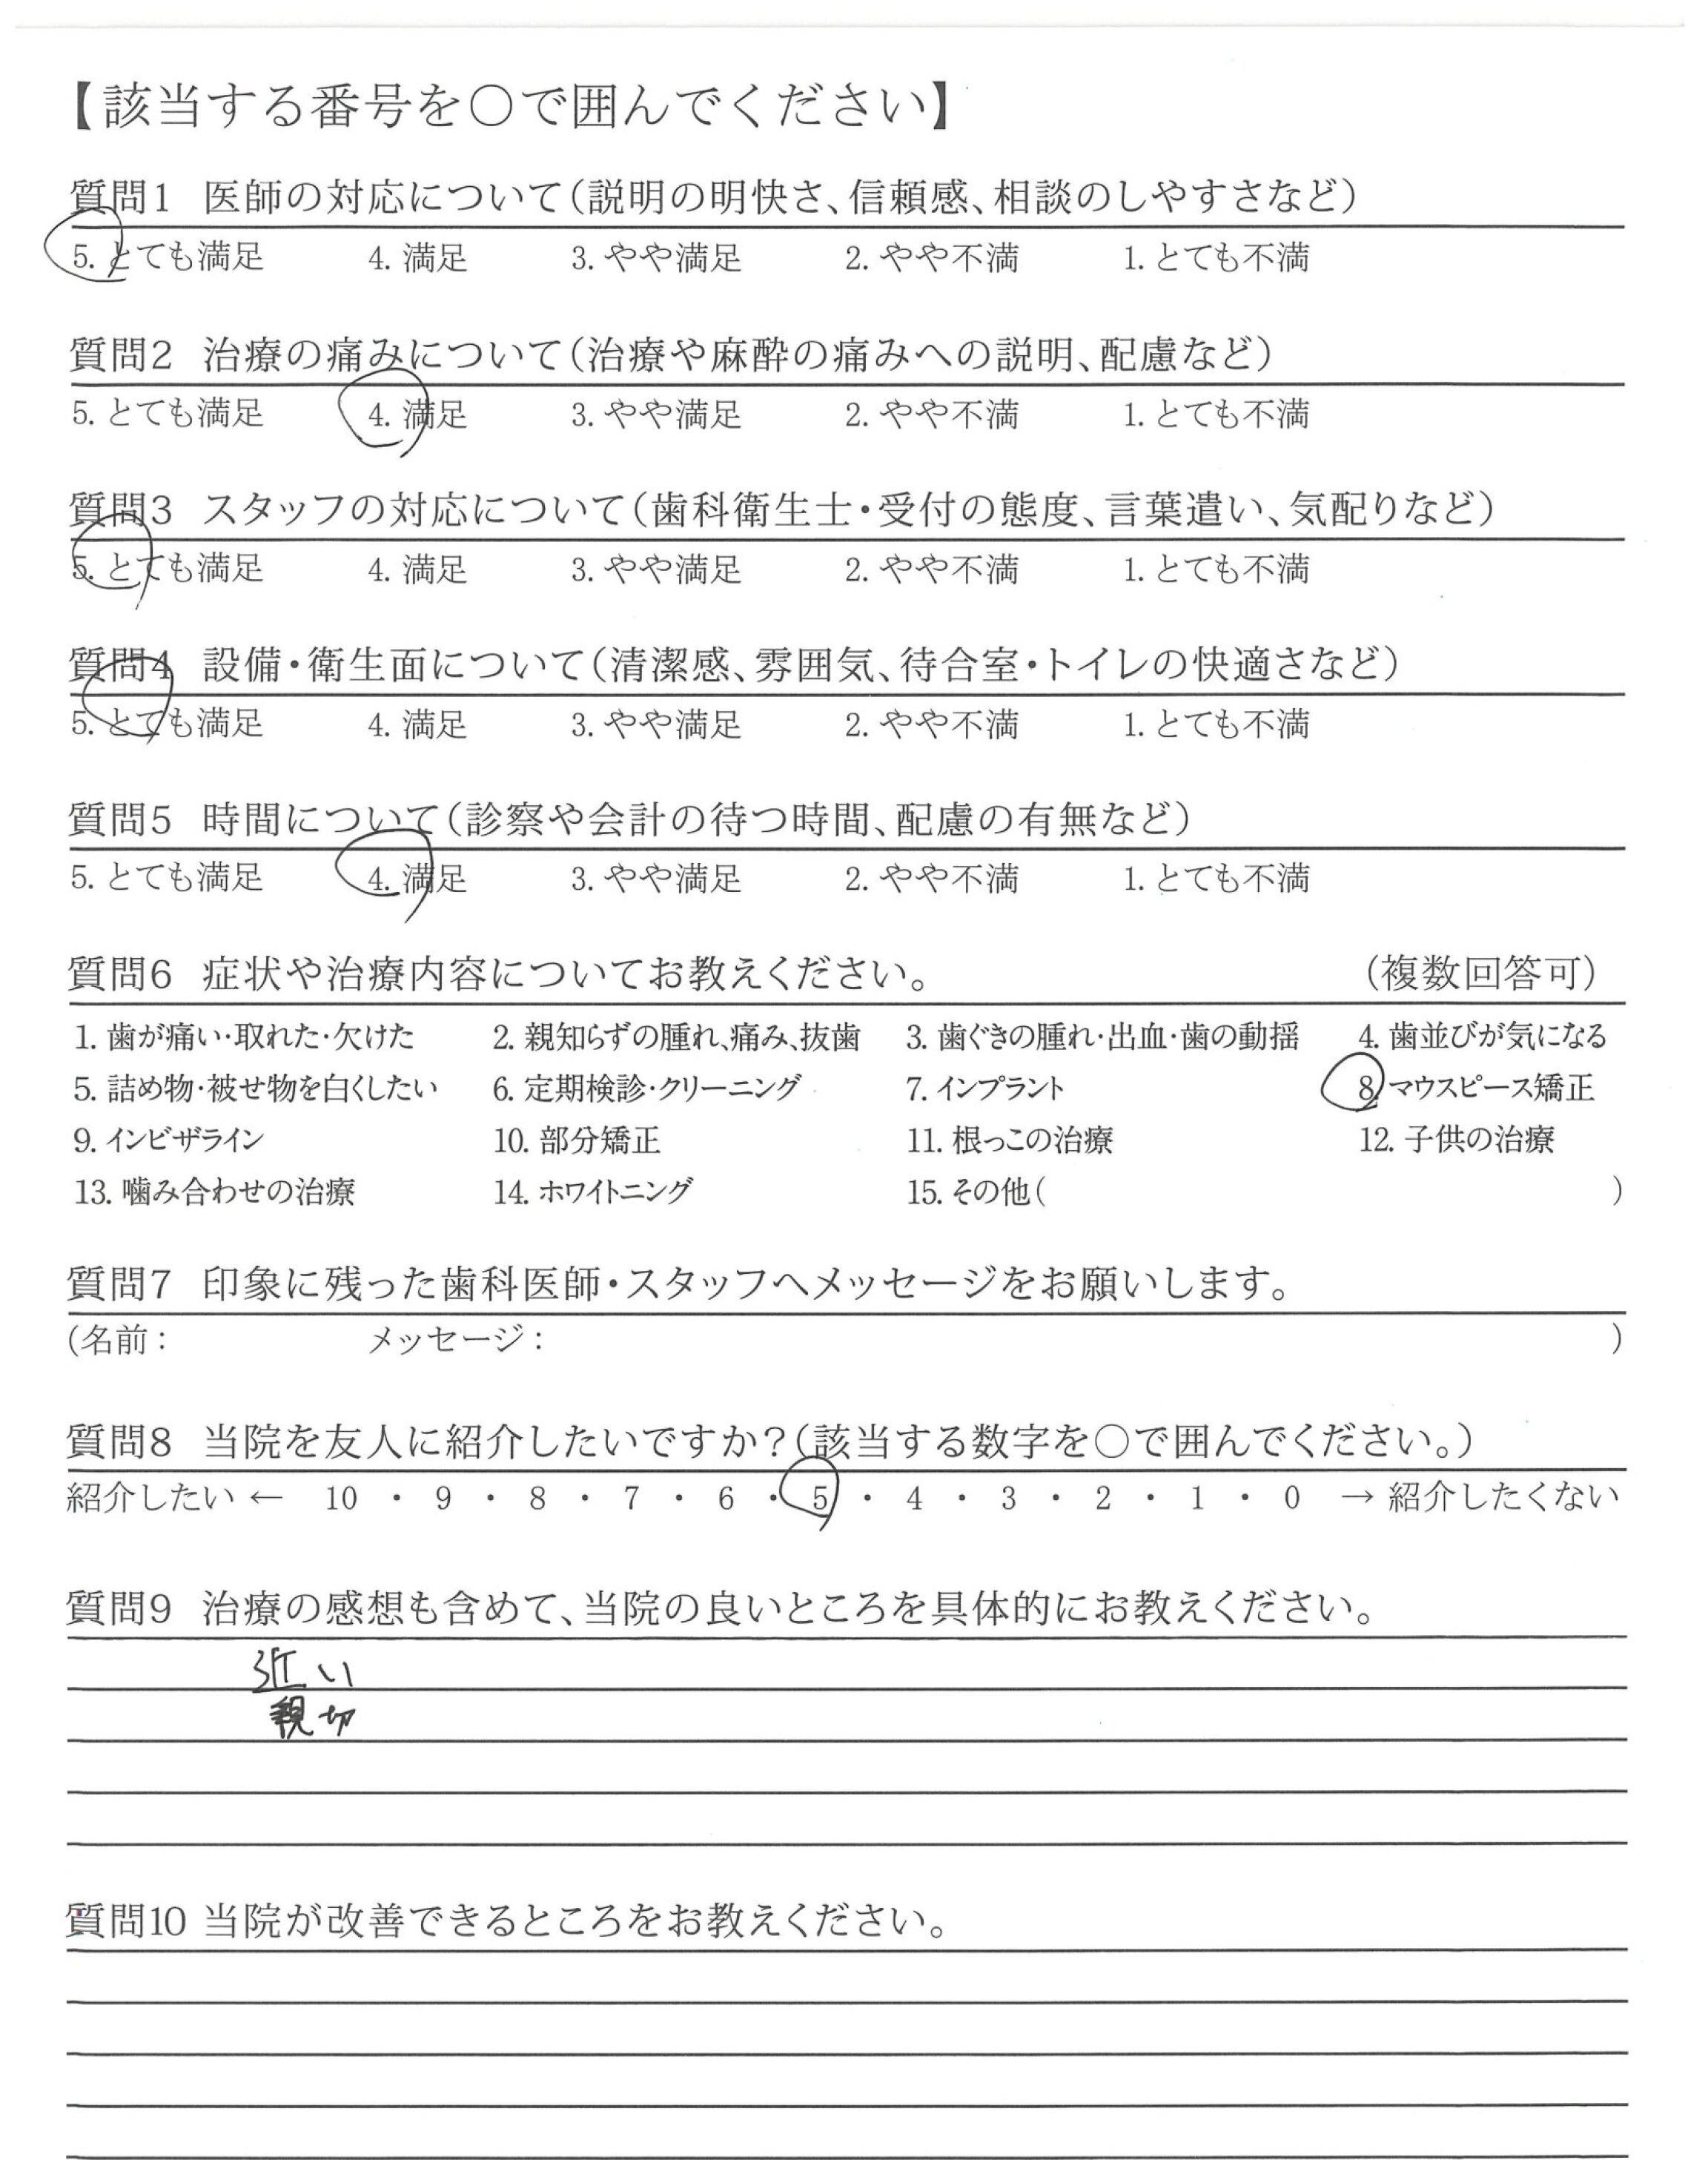 【該当する番号を〇で囲んでください】
質問1 医師の対応について（説明の明快さ、信頼感、相談のしやすさなど）
5. とても満足 4. 満足 3. やや満足 2. やや不満 1. とても不満
質問2 治療の痛みについて（治療や麻酔の痛みへの説明、配慮など）
5. とても満足 4. 満足 3. やや満足 2. やや不満 1. とても不満
質問3 スタッフの対応について（歯科衛生士・受付の態度、言葉遣い、気配りなど）
5. とても満足 4. 満足 3. やや満足 2. やや不満 1. とても不満
質問4 設備・衛生面について（清潔感、雰囲気、待合室・トイレの快適さなど）
5. とても満足 4. 満足 3. やや満足 2. やや不満 1. とても不満
質問5 時間について（診察や会計の待つ時間、配慮の有無など）
5. とても満足 4. 満足 3. やや満足 2. やや不満 1. とても不満
質問6 症状や治療内容についてお教えください。 （複数回答可）
1. 歯が痛い・取れた・欠けた 2. 親知らずの腫れ、痛み、抜歯 3. 歯ぐきの腫れ・出血・歯の動揺 4. 歯並びが気になる
5. 詰め物・被せ物を白くしたい 6. 定期検診・クリーニング 7. インプラント 8. マウスピース矯正
9. インビザライン 10. 部分矯正 11. 根っこの治療 12. 子供の治療
13. 噛み合わせの治療 14. ホワイトニング 15. その他（ ）
質問7 印象に残った歯科医師・スタッフへメッセージをお願いします。
（名前： メッセージ： ）
質問8 当院を友人に紹介したいですか？（該当する数字を〇で囲んでください。）
紹介したい ← 10 ・ 9 ・ 8 ・ 7 ・ 6 ・ 5 ・ 4 ・ 3 ・ 2 ・ 1 ・ 0 → 紹介したくない
質問9 治療の感想も含めて、当院の良いところを具体的にお教えください。
近い
親切
質問10 当院が改善できるところをお教えください。